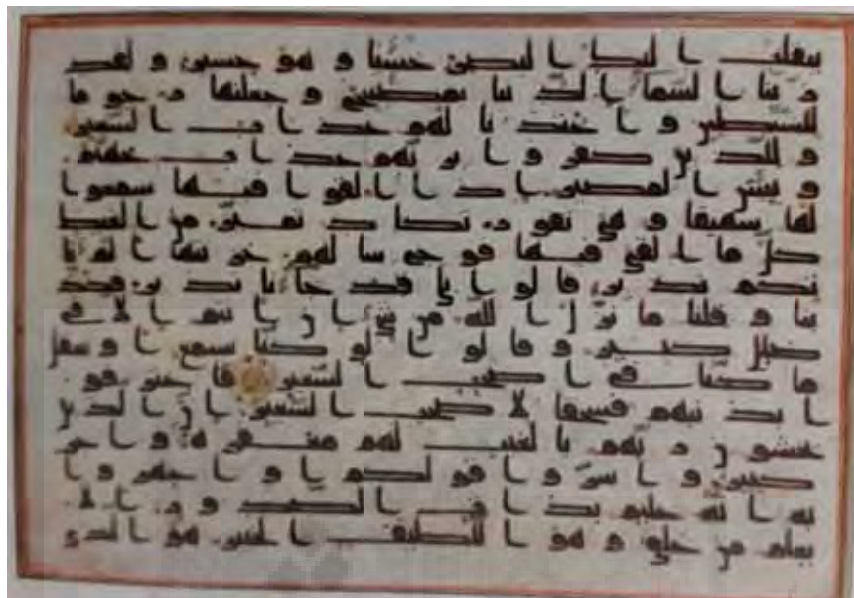 ينقلب اليك البصر خسئا وهو حسير ولقد
زينا السما الدنيا بمصبيح وجعلنها رجوما
للشيطين واعتدنا لهم عذاب السعير
وللذين كفروا بربهم عذاب جهنم
وبئس المصير اذا القوا فيها سمعوا
لها شهيقا وهي تفور تكاد تميز من الغيظ
كلما القي فيها فوج سالهم خزنتها الم يا
تكم نذير قالوا بلى قد جانا نذير فكذ
بنا وقلنا ما نزل الله من شي ان انتم الا في
ضلل كبير وقالوا لو كنا نسمع او نعقل
ما كنا في اصحب السعير فاعترفو
ا بذنبهم فسحقا لاصحب السعير ان الذين
يخشون ربهم بالغيب لهم مغفرة واجر
كبير واسروا قولكم او اجهروا
به انه عليم بذات الصدور الا
يعلم من خلق وهو اللطيف الخبير هو الذي